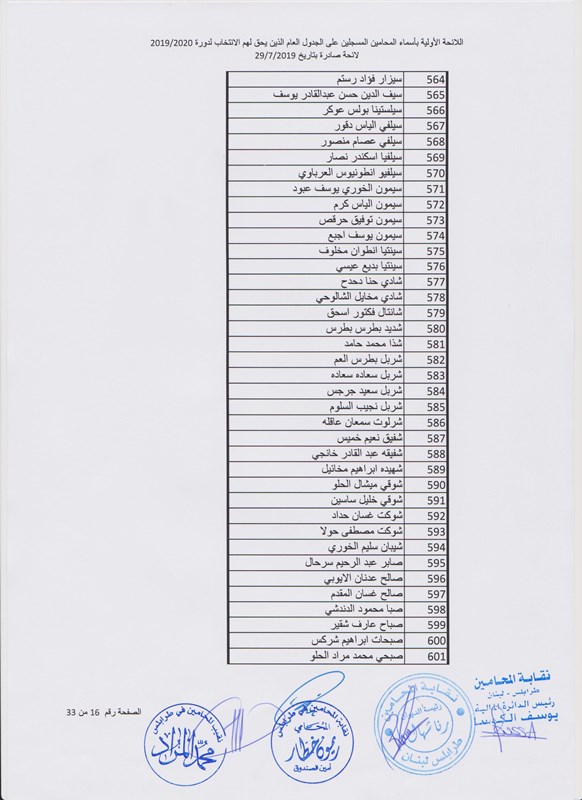 اللائحة الأولية بأسماء المحامين المسجلين على الجدول العام الذين يحق لهم الانتخاب لدورة 2019/2020
لائحة صادرة بتاريخ 29/7/2019
564 سيزار فؤاد رستم
565 سيف الدين حسن عبدالقادر يوسف
566 سيلستينا بولس عوكر
567 سيلفي الياس دقور
568 سيلفي عصام منصور
569 سيلفيا اسكندر نصار
570 سيلفيو انطونيوس العرباوي
571 سيمون الخوري يوسف عبود
572 سيمون الياس كرم
573 سيمون توفيق حرفص
574 سيمون يوسف اجبع
575 سينتيا انطوان مخلوف
576 سينتيا بديع عيسي
577 شادي حنا دحدح
578 شادي مخايل الشالوحي
579 شانتال فكتور اسحق
580 شديد بطرس بطرس
581 شذا محمد حامد
582 شربل بطرس العم
583 شربل سعاده سعاده
584 شربل سعيد جرجس
585 شربل نجيب السلوم
586 شرلوت سمعان عاقله
587 شفيق نعيم خميس
588 شفيقه عبد القادر خانجي
589 شهيده ابراهيم مخائيل
590 شوقي ميشال الحلو
591 شوقي خليل ساسين
592 شوكت غسان حداد
593 شوكت مصطفى حولا
594 شيبان سليم الخوري
595 صابر عبد الرحيم سرحال
596 صالح عدنان الايوبي
597 صالح غسان المقدم
598 صبا محمود الدندشي
599 صباح عارف شقير
600 صبحات ابراهيم شركس
601 صبحي محمد مراد الحلو
نقابة المحامين
طرابلس - لبنان
رئيس الدائرة المالية
يوسف
نقابة المحامين
طرابلس لبنان
نقابة المحامين في طرابلس
المحامي
ريمون خطار
أمين الصندوق
نقيب المحامين في طرابلس
محمد المراد
الصفحة رقم 16 من 33